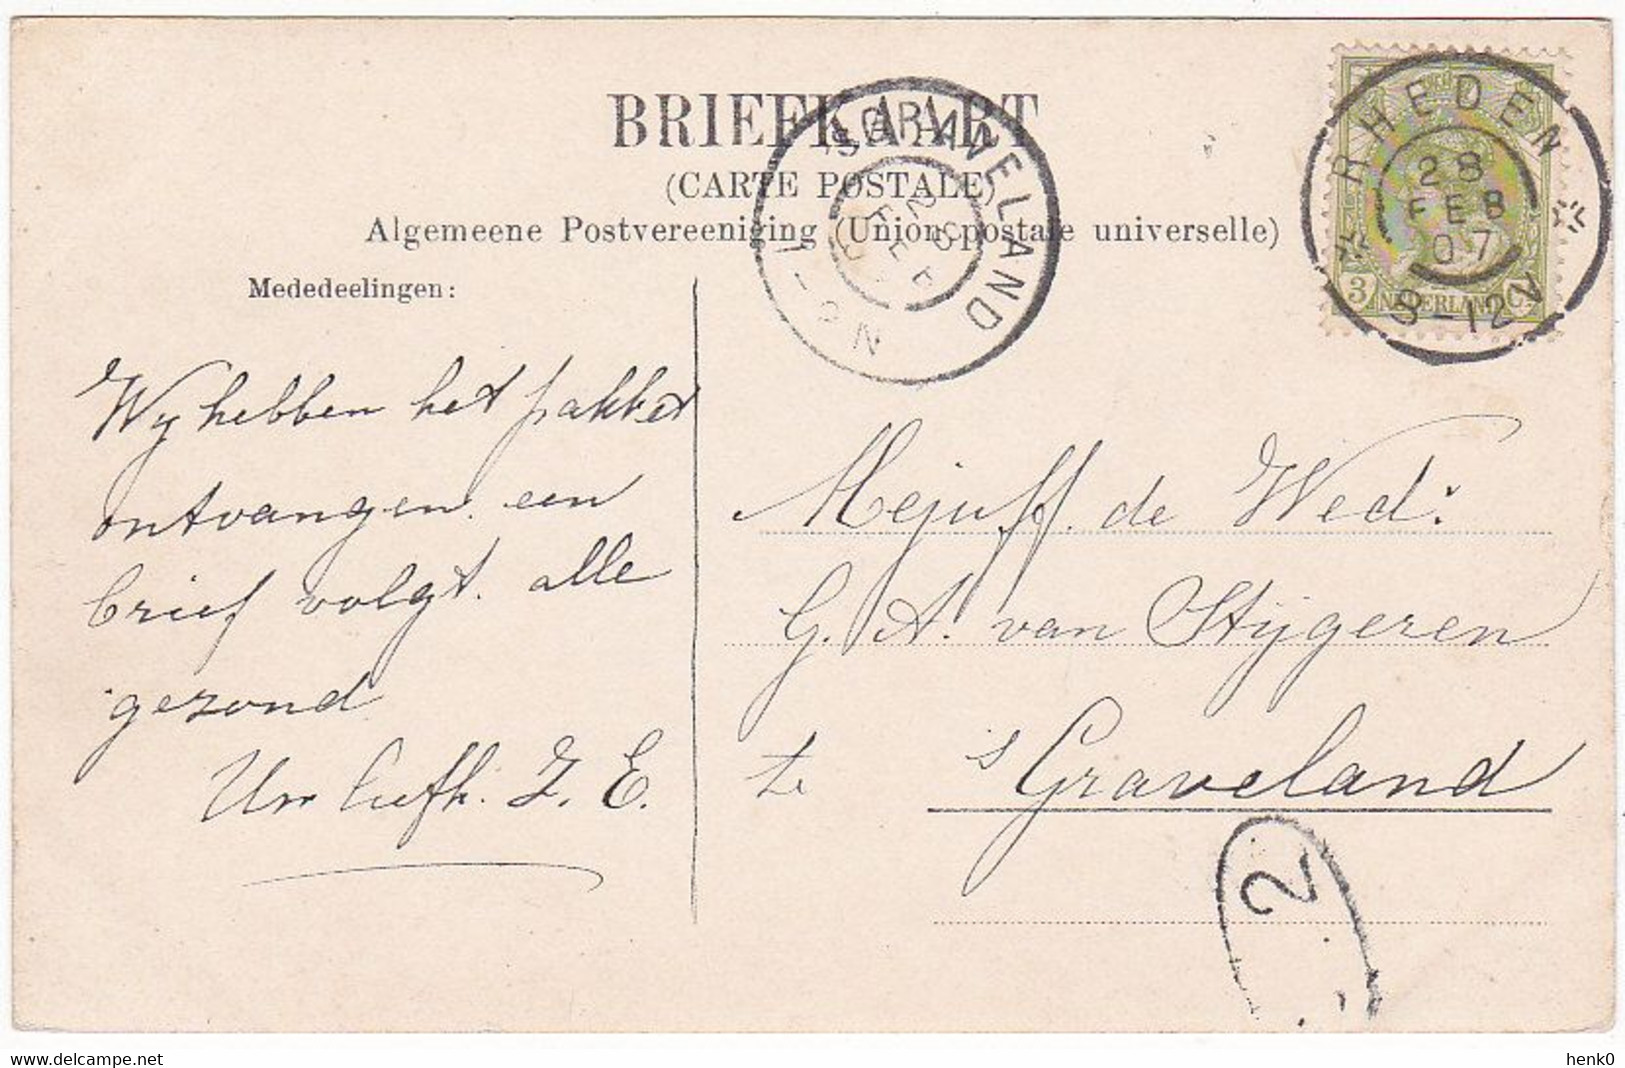 BRIEFKAART
(CARTE POSTALE)
Algemeene Postvereeniging (Union postale universelle)
Mededeelingen:
'SGRAVELAND
28
FEB
N
RHEDEN
28
FEB
07
8-12N
3
NEDERLAND
Ct
Wy hebben het pakket
ontvangen. een
brief volgt. alle
gezond
Uw liefh. J. E.
Mejuff. de Wed:
G. A. van Stijgeren
te 's Graveland
2
www.delcampe.net
henk0